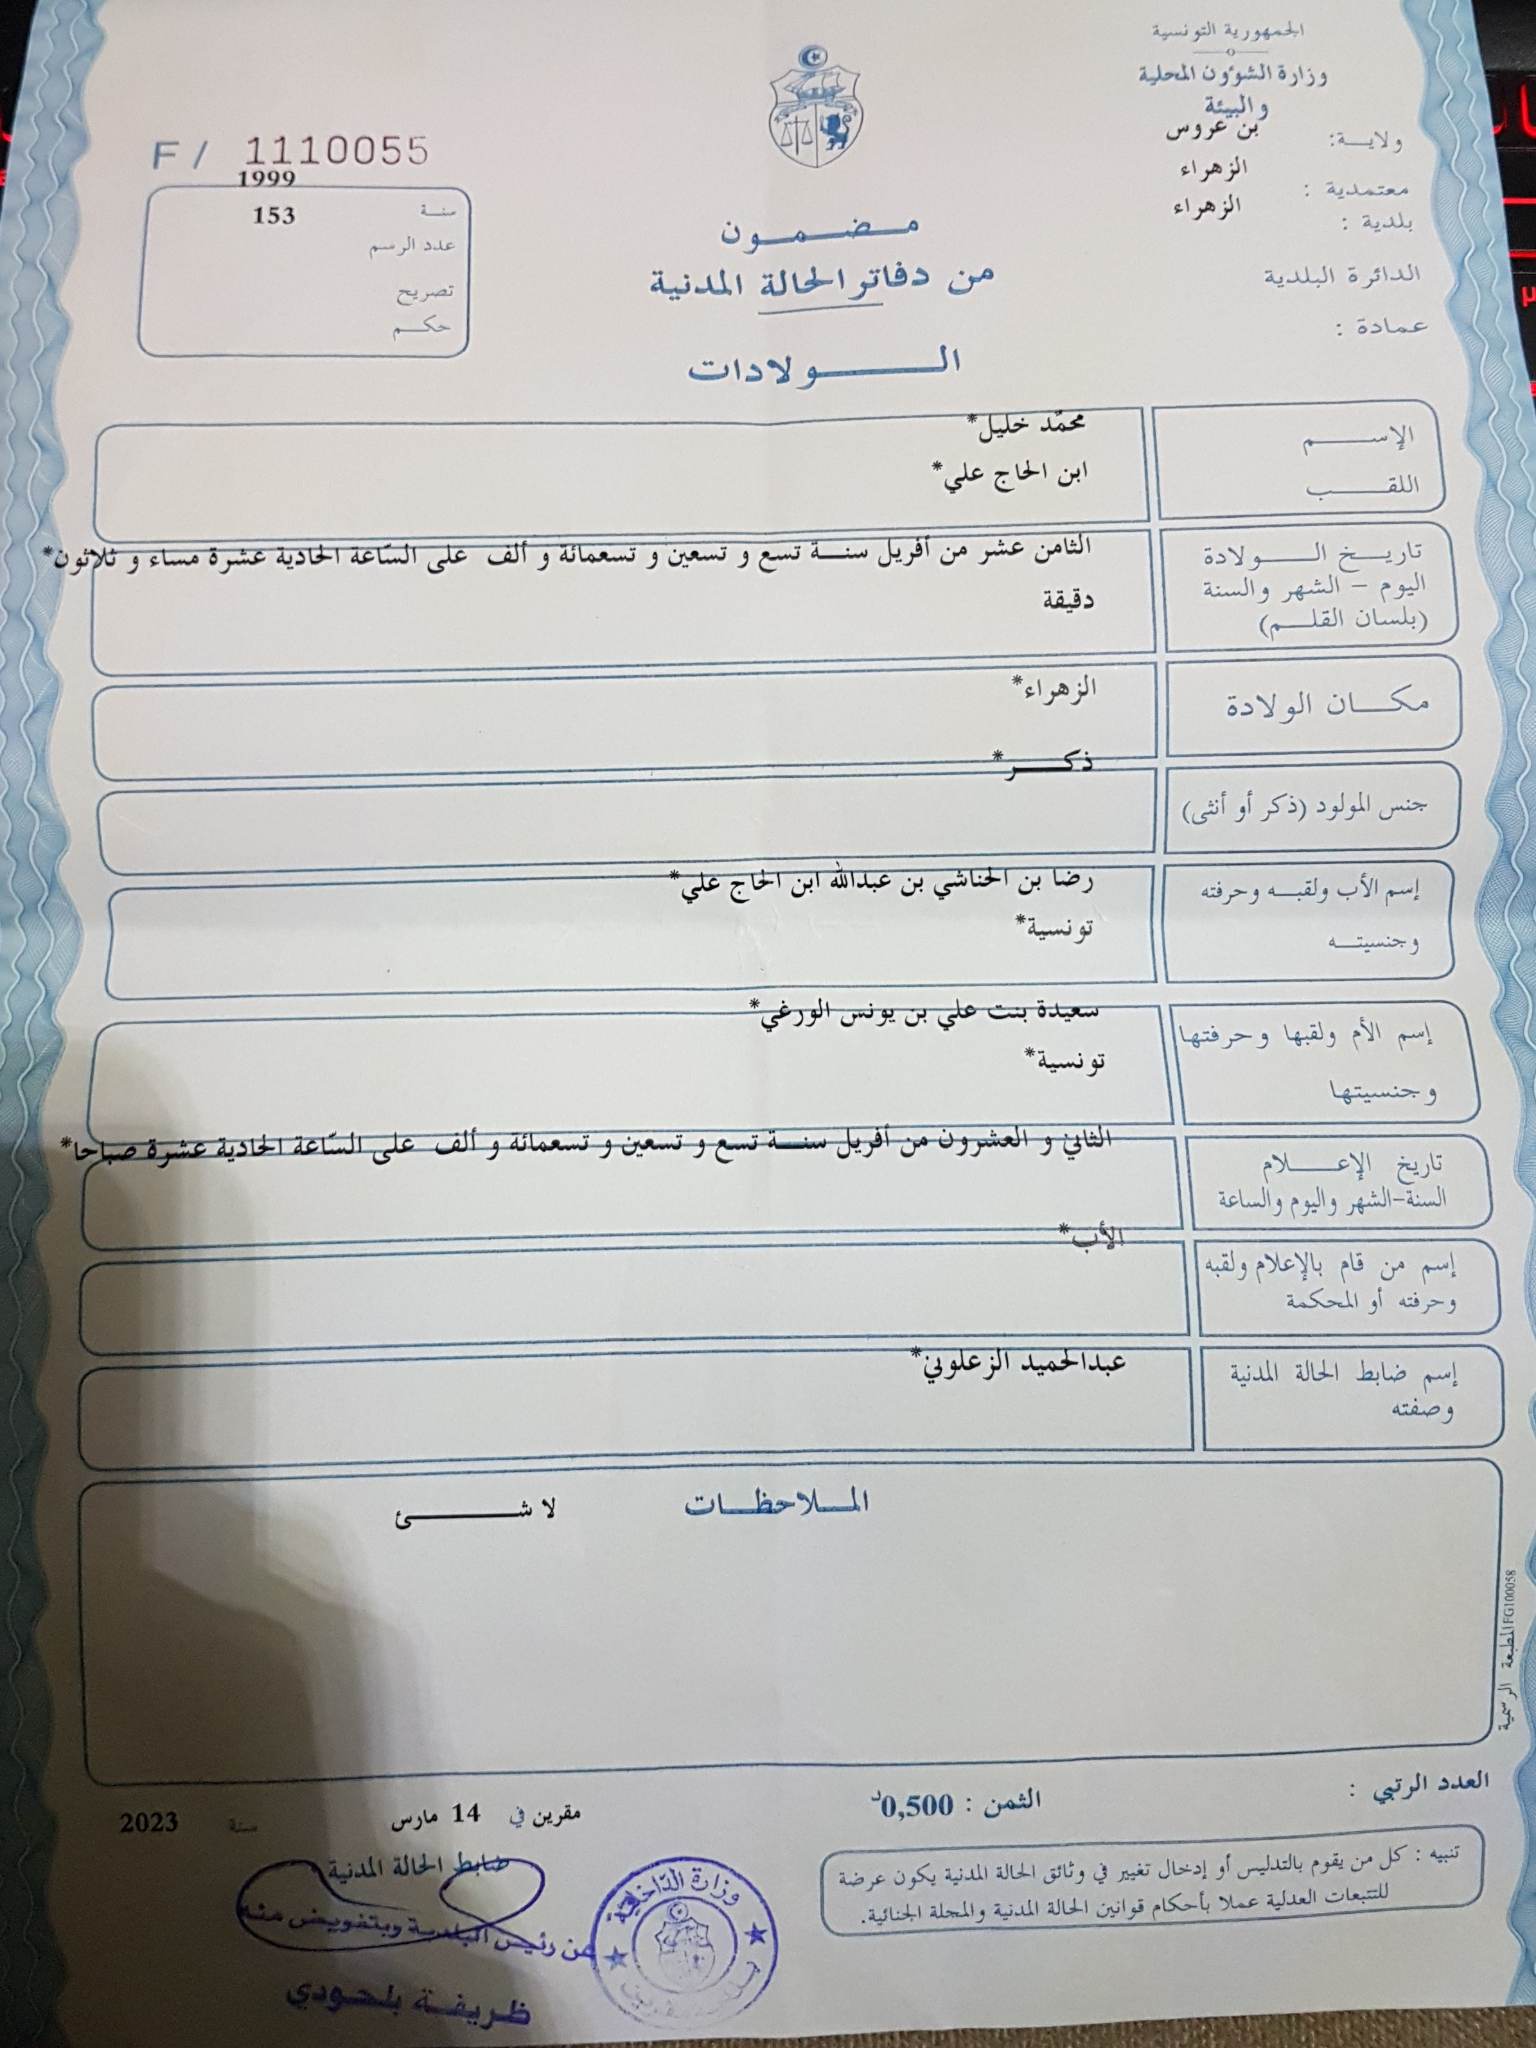 الجمهورية التونسية
وزارة الشؤون المحلية
والبيئة
ولايـــة: بن عروس
معتمدية : الزهراء
بلدية : الزهراء
الدائرة البلدية
عمادة :
F / 1110055
سنة 1999
عدد الرسم 153
تصريح
حكم
مضمون
من دفاتر الحالة المدنية
الولادات
الإسم
محمّد خليل*
اللقب
ابن الحاج علي*
تاريخ الولادة
اليوم – الشهر والسنة
(بلسان القلم)
الثامن عشر من أفريل سنة تسع و تسعين و تسعمائة و ألف على السّاعة الحادية عشرة مساء و ثلاثون*
دقيقة
مكان الولادة
الزهراء*
جنس المولود (ذكر أو أنثى)
ذكر*
إسم الأب ولقبه وحرفته
وجنسيته
رضا بن الحناشي بن عبدالله ابن الحاج علي*
تونسية*
إسم الأم ولقبها وحرفتها
وجنسيتها
سعيدة بنت علي بن يونس الورغي*
تونسية*
تاريخ الإعلام
السنة-الشهر واليوم والساعة
الثاني و العشرون من أفريل سنة تسع و تسعين و تسعمائة و ألف على السّاعة الحادية عشرة صباحا*
إسم من قام بالإعلام ولقبه
وحرفته أو المحكمة
الأب*
إسم ضابط الحالة المدنية
وصفته
عبدالحميد الزعلوني*
الملاحظات
لا شئ
المطبعة الرسمية FG100058
العدد الرتبي :
الثمن : 0,500د
مقرين في 14 مارس سنة 2023
ضابط الحالة المدنية
تنبيه : كل من يقوم بالتدليس أو إدخال تغيير في وثائق الحالة المدنية يكون عرضة
للتتبعات العدلية عملا بأحكام قوانين الحالة المدنية والمجلة الجنائية.
عن رئيس البلدية وبتفويض منه
ظريفة بلحودي
وزارة الداخلية